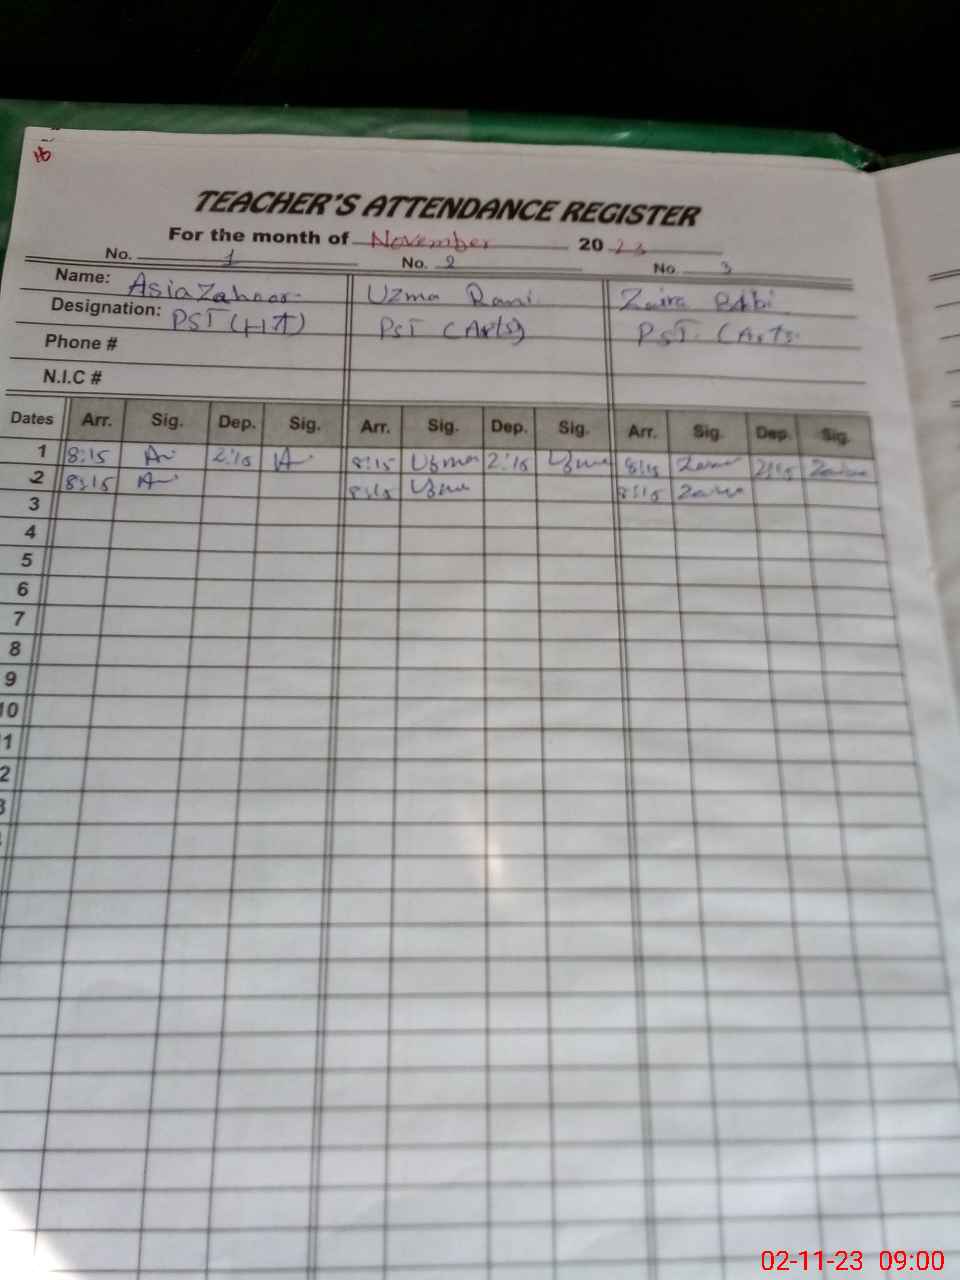 TEACHER'S ATTENDANCE REGISTER
For the month of November 20 23
No. 1 No. 2 No 3
Name: Asia Uzma Rani Zaira Bibi
Designation: PST (HT) PST (Arts) PST (Arts
Phone #
N.I.C #
Dates Arr. Sig. Dep. Sig. Arr. Sig. Dep. Sig. Arr. Sig. Dep. Sig.
1 8:15 2:15 8:15 Uzma 2:15 Uzma 8:15 2:15
2 8:15 8:15 Uzma 8:15
3
4
5
6
7
8
9
10
1
2
3
02-11-23 09:00